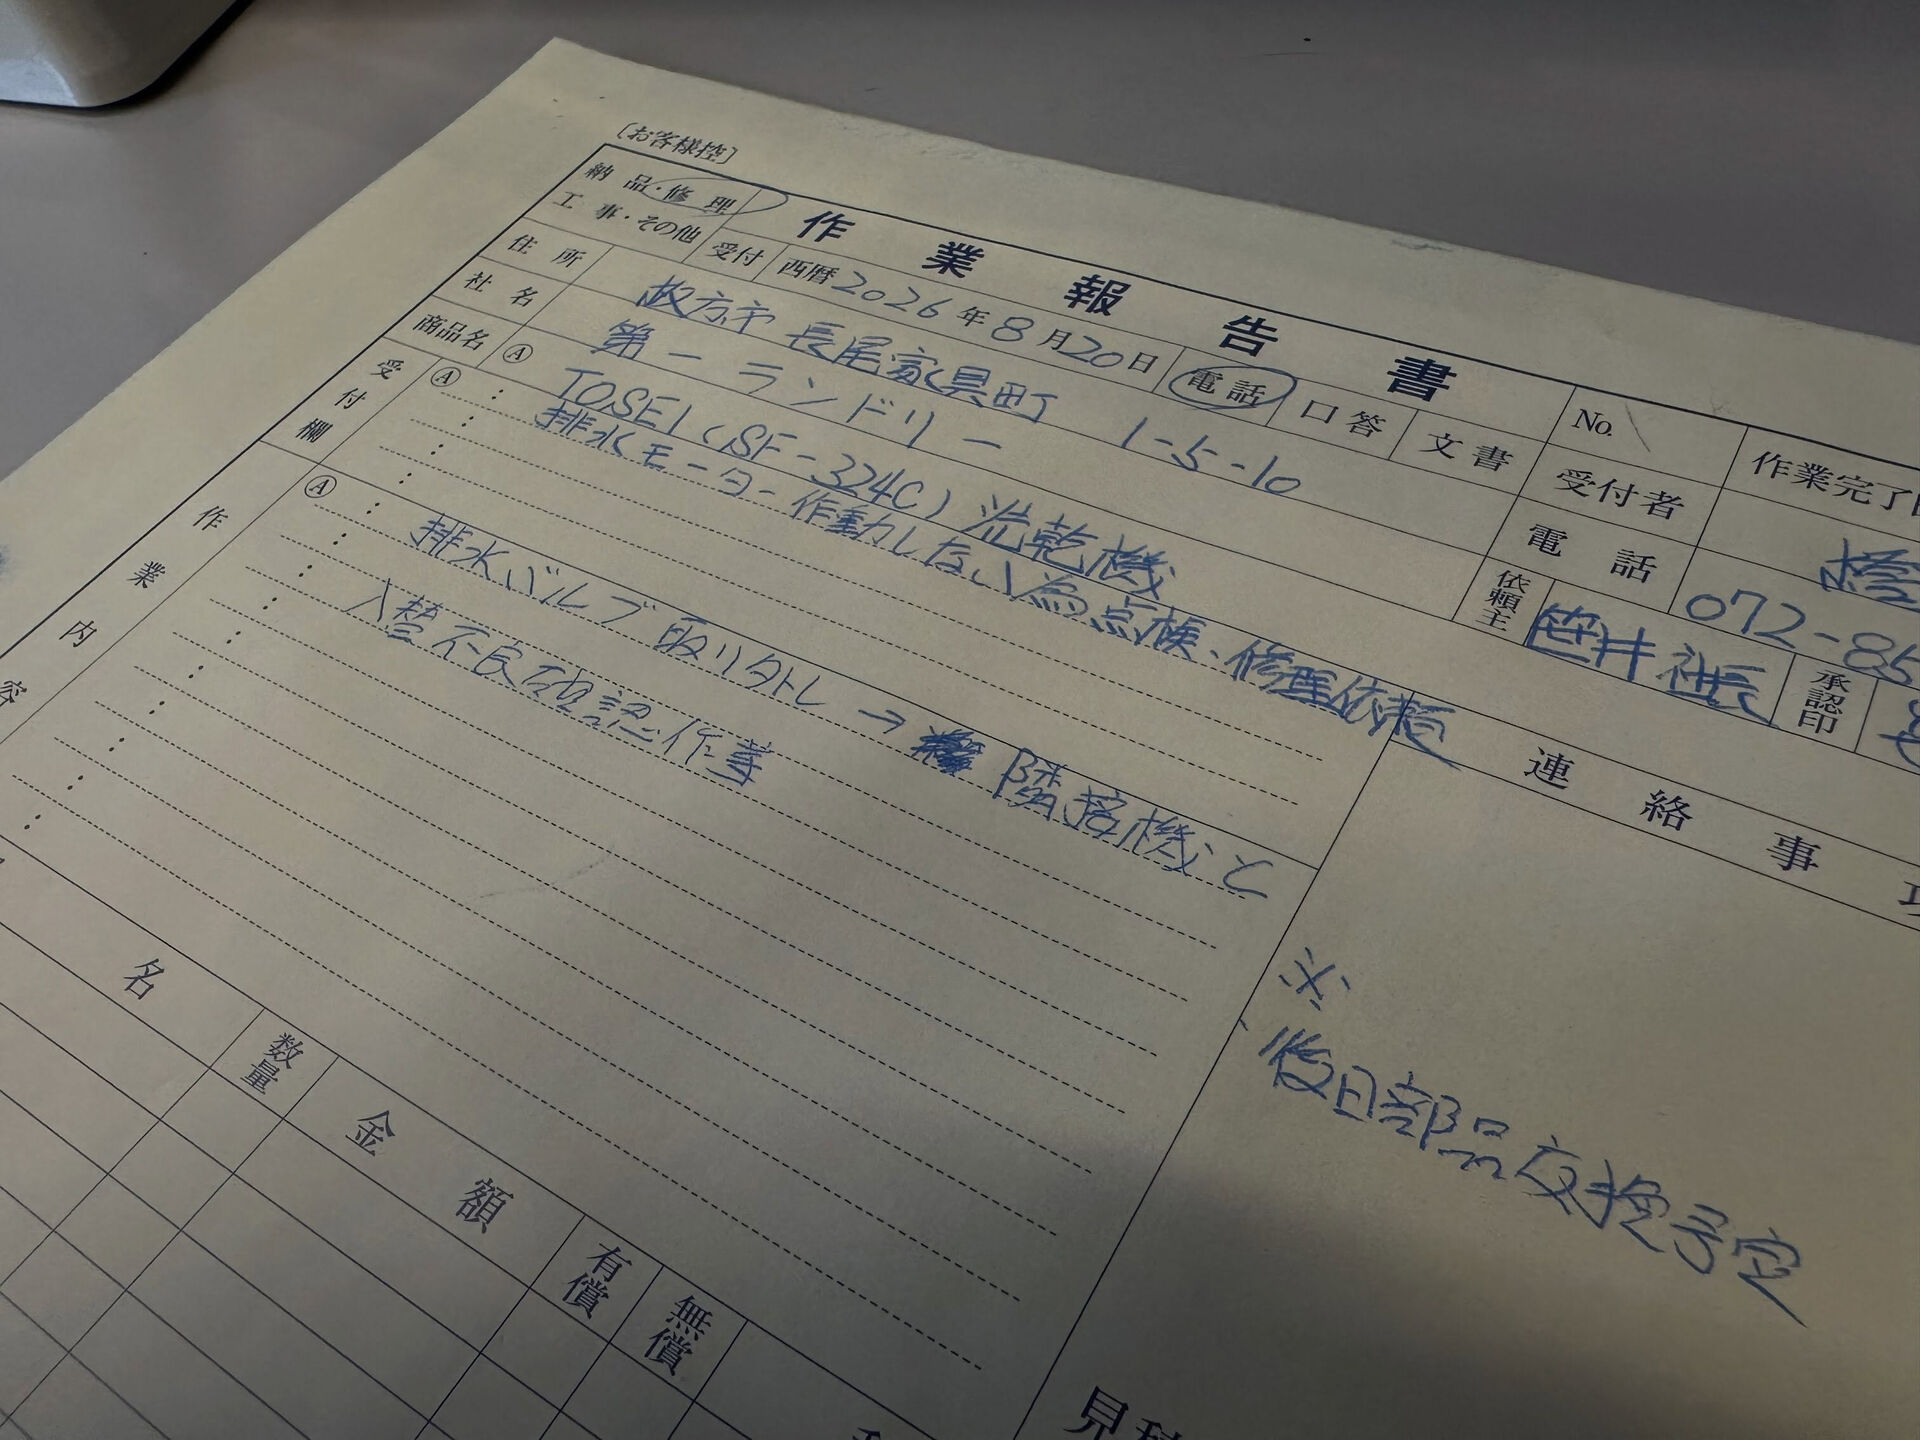 〔お客様控〕
納品・修理
工事・その他
作業報告書
受付 西暦2026年8月20日 電話 口答 文書
No.
作業完了
住所 枚方市 長尾家具町 1-5-10
受付者
社名 第一ランドリー
電話 072-85
商品名 Ⓐ TOSEI (SF-324C) 洗乾機
依頼主 笹井社長
承認印
受付欄 Ⓐ 排水モーター作動しない為点検、修理依頼
連絡事項
作業内容 Ⓐ 排水バルブ取り外し→ 隣接機と
入替不良確認作業
※
後日部品交換予定
名 数量 金額 有償 無償
見積